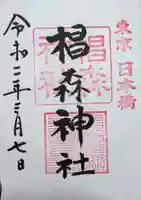 東京 日本橋
椙森神社
令和二年三月七日
椙森
神社